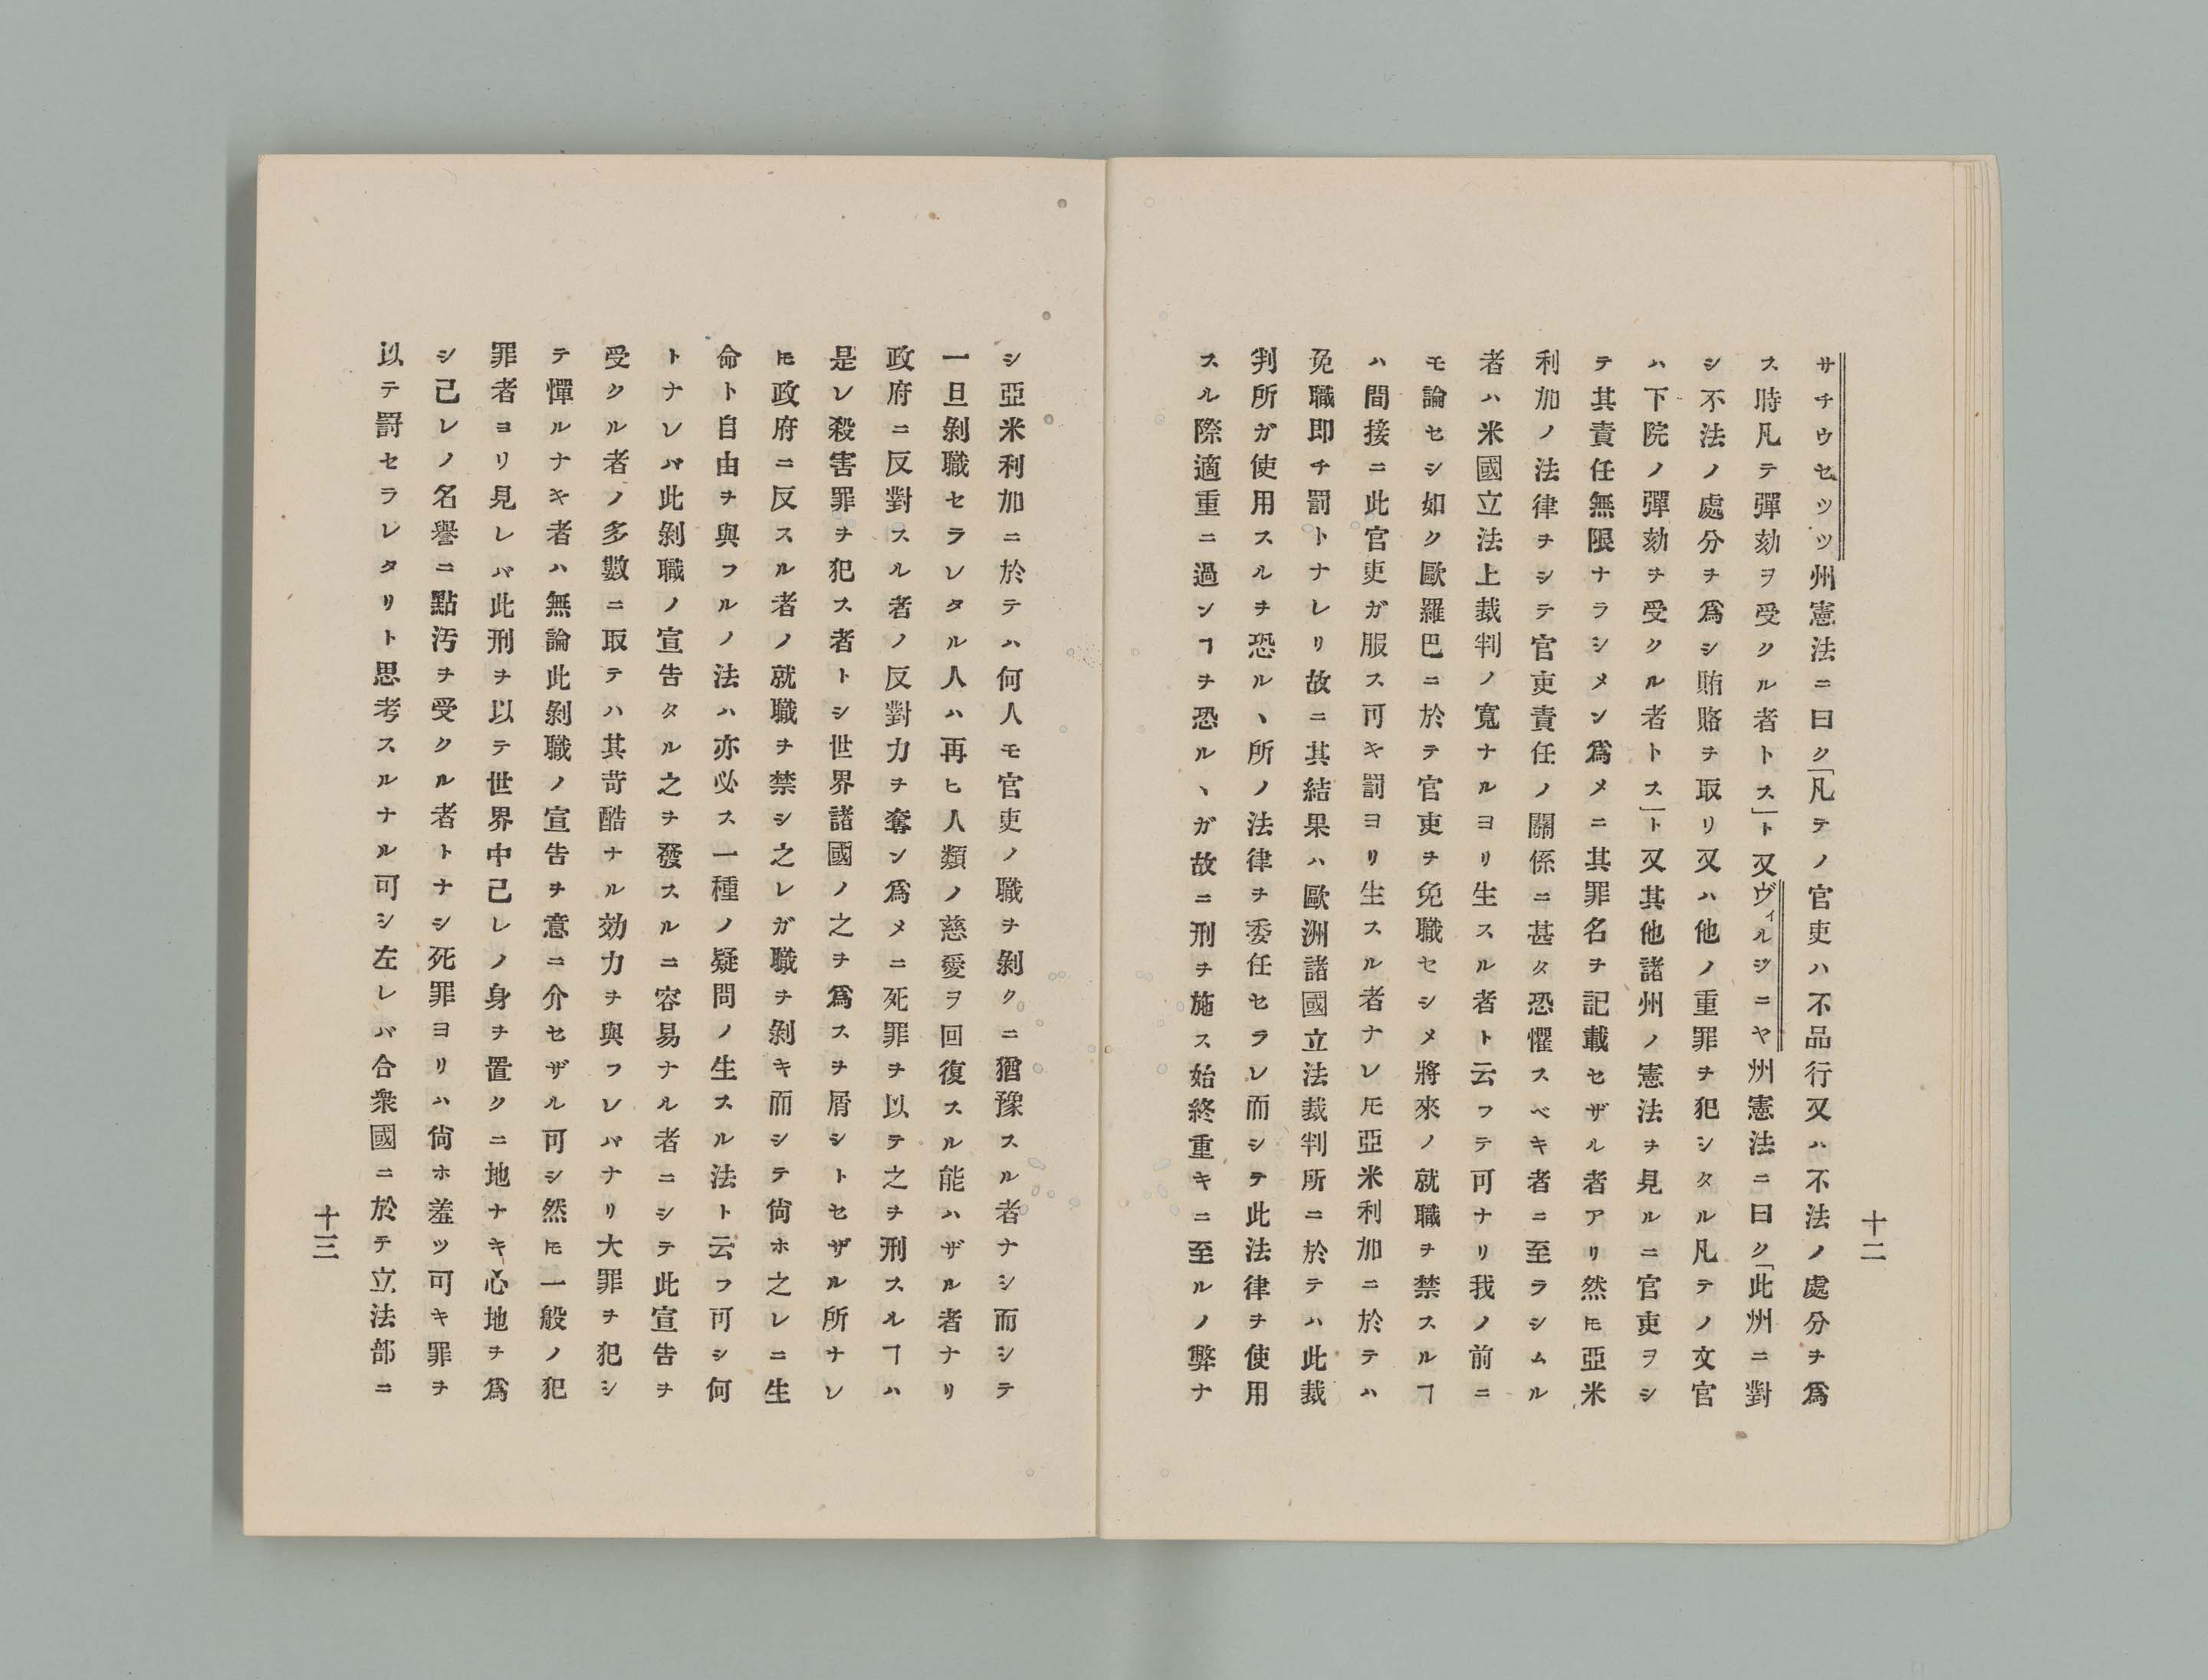 十二
サチウセッツ州憲法ニ曰ク「凡テノ官吏ハ不品行又ハ不法ノ處分ヲ爲
ス時凡テ彈劾ヲ受クル者トス」ト又ヴィルジニヤ州憲法ニ曰ク「此州ニ對
シ不法ノ處分ヲ爲シ賄賂ヲ取リ又ハ他ノ重罪ヲ犯シタル凡テノ文官
ハ下院ノ彈劾ヲ受クル者トス」ト又其他諸州ノ憲法ヲ見ルニ官吏ヲシ
テ其責任無限ナラシメン爲メニ其罪名ヲ記載セザル者アリ然ㇳモ亞米
利加ノ法律ヲシテ官吏責任ノ關係ニ甚タ恐懼スベキ者ニ至ラシムル
者ハ米國立法上裁判ノ寬ナルヨリ生スル者ト云フテ可ナリ我ノ前ニ
モ論セシ如ク歐羅巴ニ於テ官吏ヲ免職セシメ將來ノ就職ヲ禁スルヿ
ハ間接ニ此官吏ガ服ス可キ罰ヨリ生スル者ナレㇳモ亞米利加ニ於テハ
免職即チ罰トナレリ故ニ其結果ハ歐洲諸國立法裁判所ニ於テハ此裁
判所ガ使用スルヲ恐ルヽ所ノ法律ヲ委任セラレ而シテ此法律ヲ使用
スル際適重ニ過ンヿヲ恐ルヽガ故ニ刑ヲ施ス始終重キニ至ルノ弊ナ
シ亞米利加ニ於テハ何人モ官吏ノ職ヲ剝クニ猶豫スル者ナシ而シテ
一旦剝職セラレタル人ハ再ヒ人類ノ慈愛ヲ回復スル能ハザル者ナリ
政府ニ反對スル者ノ反對力ヲ奪ン爲メニ死罪ヲ以テ之ヲ刑スルヿハ
是レ殺害罪ヲ犯ス者トシ世界諸國ノ之ヲ爲スヲ屑シトセザル所ナレ
ㇳモ政府ニ反スル者ノ就職ヲ禁シ之レガ職ヲ剝キ而シテ尙ホ之レニ生
命ト自由ヲ與フルノ法ハ亦必ス一種ノ疑問ノ生スル法ト云フ可シ何
トナレバ此剝職ノ宣告タル之ヲ發スルニ容易ナル者ニシテ此宣告ヲ
受クル者ノ多數ニ取テハ其苛酷ナル効力ヲ與フレバナリ大罪ヲ犯シ
テ憚ルナキ者ハ無論此剝職ノ宣告ヲ意ニ介セザル可シ然ㇳモ一般ノ犯
罪者ヨリ見レバ此刑ヲ以テ世界中己レノ身ヲ置クニ地ナキ心地ヲ爲
シ己レノ名譽ニ點汚ヲ受クル者トナシ死罪ヨリハ尙ホ羞ツ可キ罪ヲ
以テ罰セラレタリト思考スルナル可シ左レバ合衆國ニ於テ立法部ニ
十三